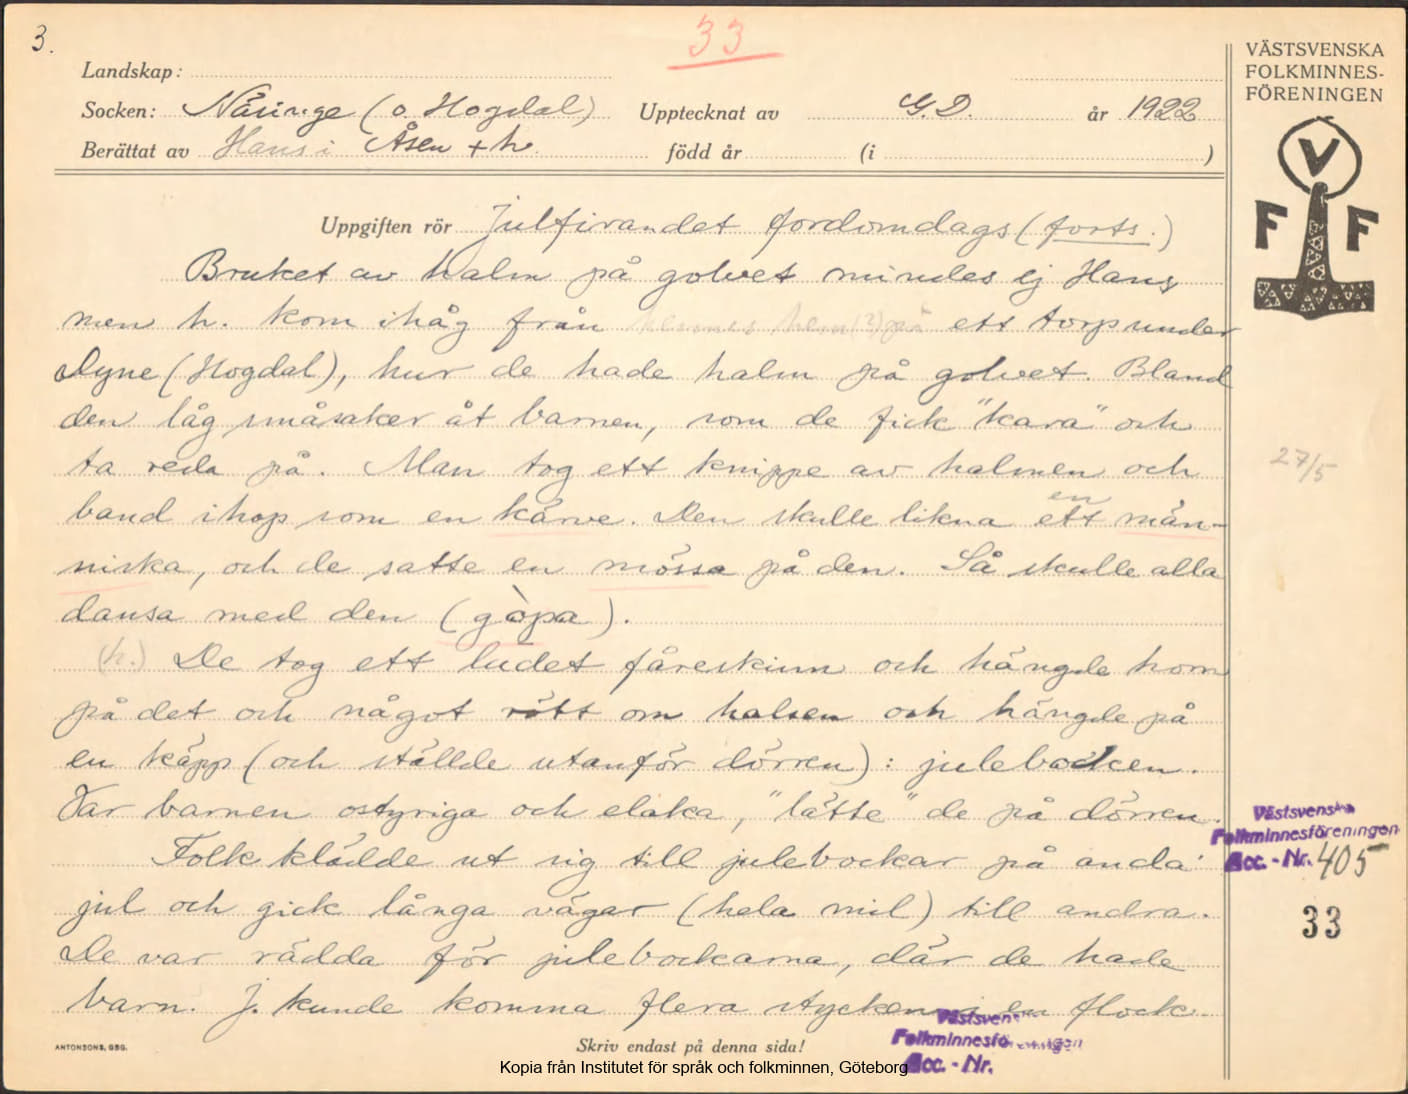 3.
33
Landskap:
Socken: Näsinge (o. Hogdal) Upptecknat av G. D. år 1922
Berättat av Hans i Åsen + h. född år (i )
Uppgiften rör Julfirandet fordomdags (forts.)
Bruket av halm på golvet mindes ej Hans
men h. kom ihåg från hennes hem (?) på ett torp under
Dyne (Hogdal), hur de hade halm på golvet. Bland
den låg småsaker åt barnen, som de fick "kara" och
ta reda på. Man tog ett knippe av halmen och
band ihop som en kärve. Den skulle likna ett en män-
niska, och de satte en mössa på den. Så skulle alla
dansa med den (gòpa).
(h.) De tog ett ludet fåreskinn och hängde horn
på det och något rött om halsen och hängde på
en käpp (och ställde utanför dörren): julebocken.
Var barnen ostyriga och elaka, "lätte" de på dörren.
Folk klädde ut sig till julebockar på anda'
jul och gick långa vägar (hela mil) till andra.
De var rädda för julebockarna, där de hade
barn. J. kunde komma flera stycken i en flock.
ANTONSONS, GBG.
Skriv endast på denna sida!
Västsvenska
Folkminnesföreningen
Acc. - Nr.
Kopia från Institutet för språk och folkminnen, Göteborg
VÄSTSVENSKA
FOLKMINNES-
FÖRENINGEN
V
F F
27/5
Västsvenska
Folkminnesföreningen
Acc. - Nr. 405
33